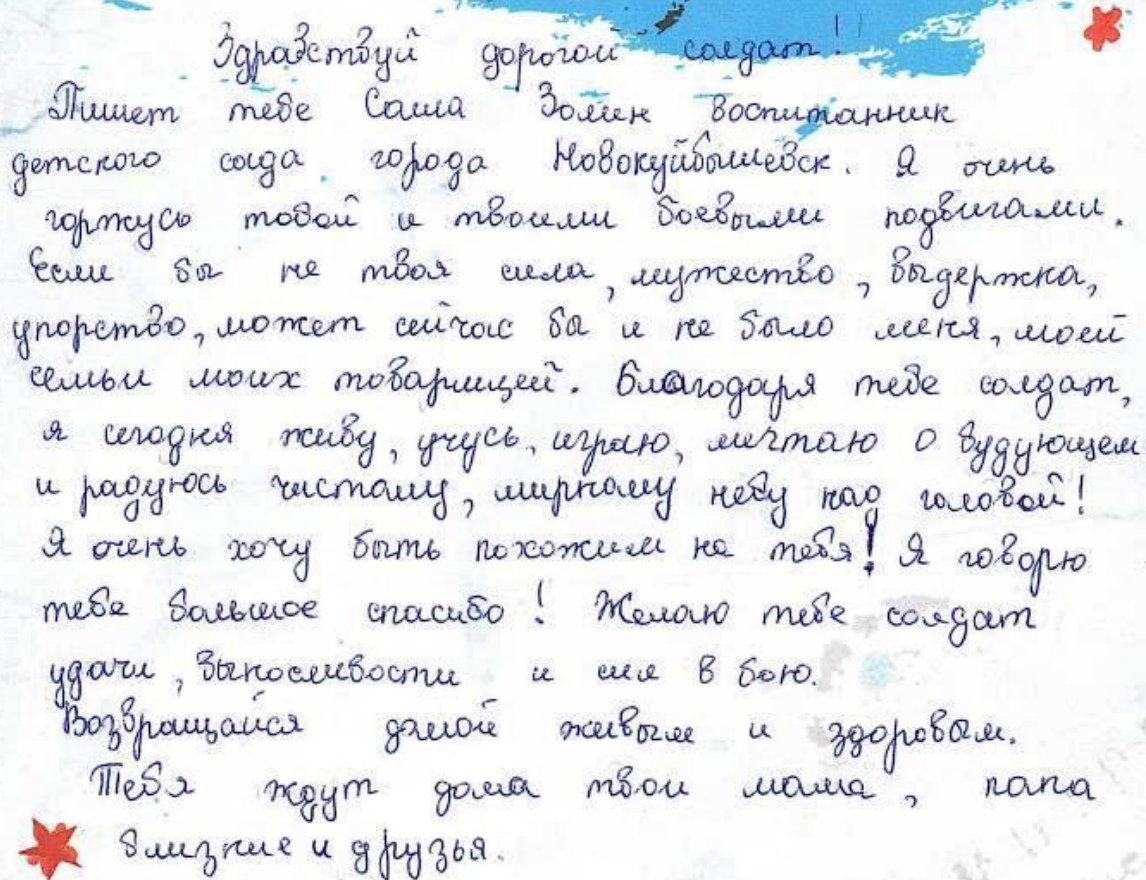 Здравствуй дорогой солдат!!
Пишет тебе Саша Золин воспитанник
детского сада города Новокуйбышевск. Я очень
горжусь тобой и твоими боевыми подвигами.
Если бы не твоя сила, мужество, выдержка,
упорство, может сейчас бы и не было меня, моей
семьи моих товарищей. Благодаря тебе солдат,
я сегодня живу, учусь, играю, мечтаю о будующем
и радуюсь чистому, мирному небу над головой!
Я очень хочу быть похожим на тебя! Я говорю
тебе большое спасибо! Желаю тебе солдат
удачи, выносливости и сил в бою.
Возвращайся домой живым и здоровым.
Тебя ждут дома твои мама, папа
близкие и друзья.